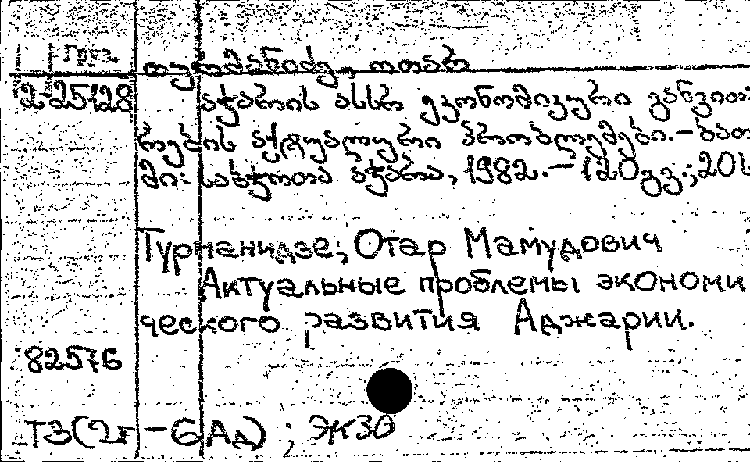 Груз.
თურმანიძე, ოთარ
225128 აჭარის ასსრ ეკონომიკური განვითა
რების აქტუალური პრობლემები.-ბათუ
მი: საბჭოთა აჭარა, 1982.-120გვ.;20
Турманидзе, Отар Мамудович
Актуальные проблемы экономи
ческого развития Аджарии.
82576
Т3(2г-6Ад); ЭКЗО